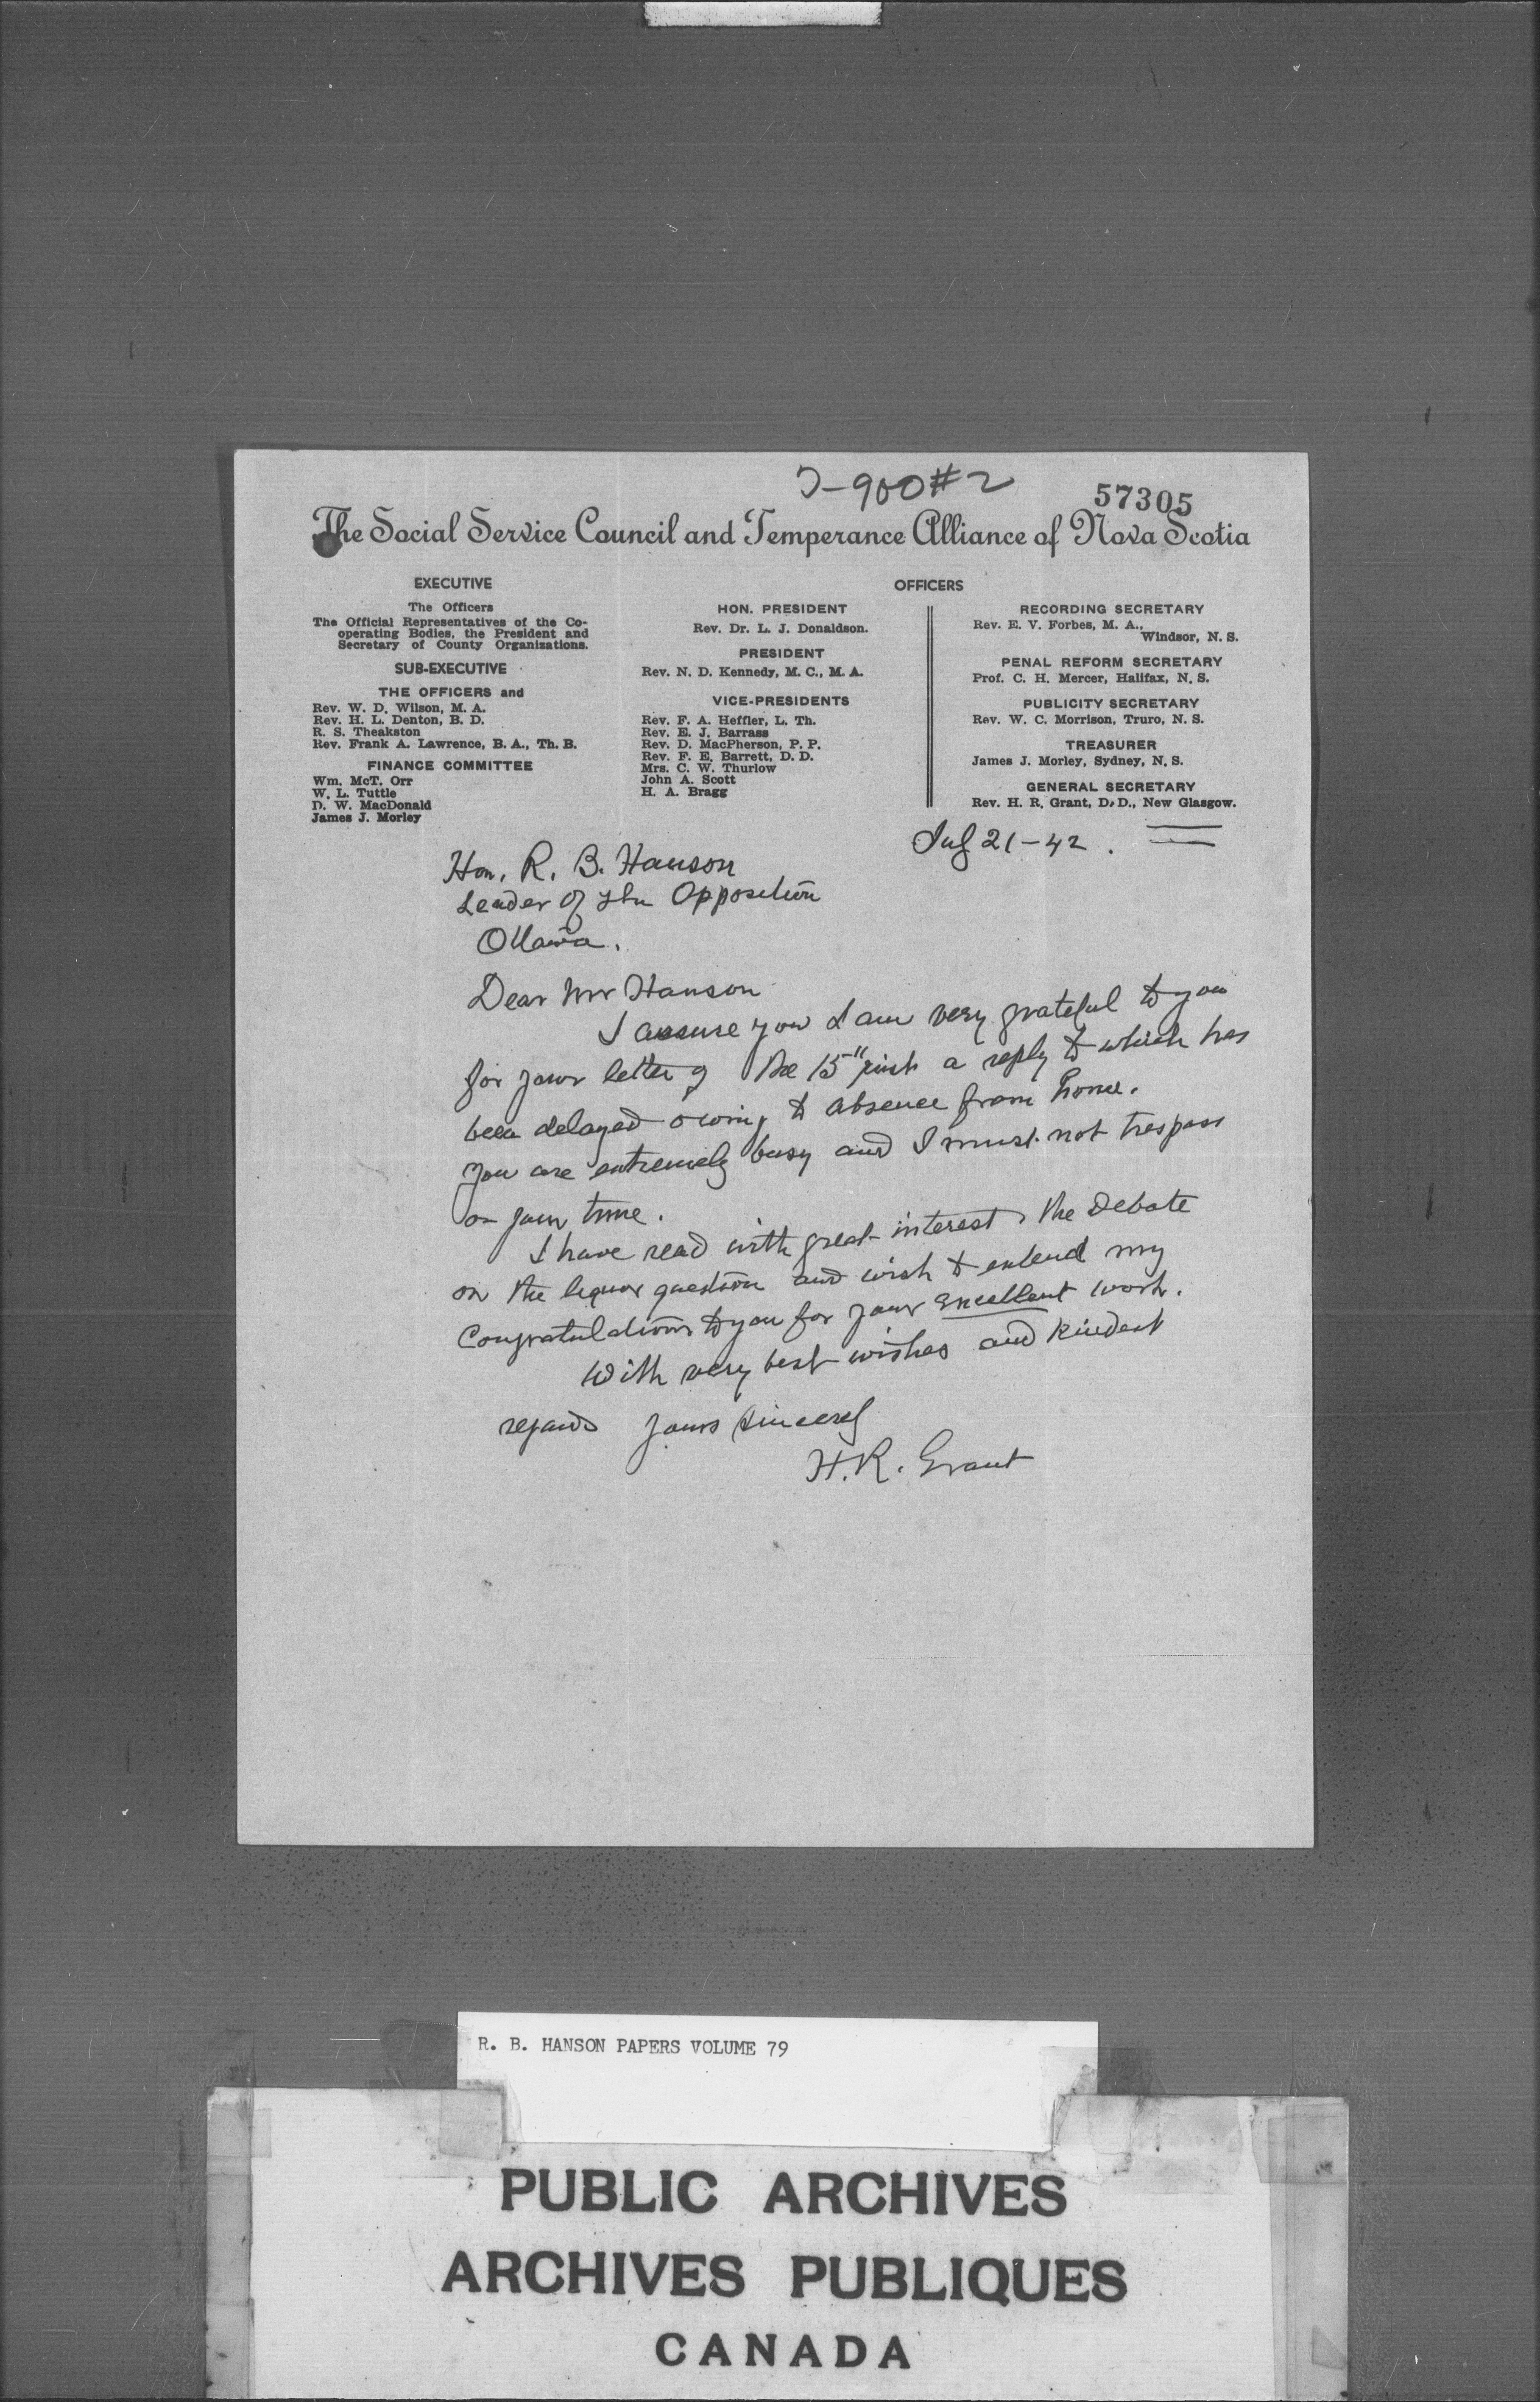 T-900#2
57305
The Social Service Council and Temperance Alliance of Nova Scotia
EXECUTIVE
The Officers
The Official Representatives of the Co-
operating Bodies, the President and
Secretary of County Organizations.
SUB-EXECUTIVE
THE OFFICERS and
Rev. W. D. Wilson, M. A.
Rev. H. L. Denton, B. D.
R. S. Theakston
Rev. Frank A. Lawrence, B. A., Th. B.
FINANCE COMMITTEE
Wm. McT. Orr
W. L. Tuttle
D. W. MacDonald
James J. Morley
OFFICERS
HON. PRESIDENT
Rev. Dr. L. J. Donaldson.
PRESIDENT
Rev. N. D. Kennedy, M. C., M. A.
VICE-PRESIDENTS
Rev. F. A. Heffler, L. Th.
Rev. E. J. Barrass
Rev. D. MacPherson, P. P.
Rev. F. E. Barrett, D. D.
Mrs. C. W. Thurlow
John A. Scott
H. A. Bragg
RECORDING SECRETARY
Rev. E. V. Forbes, M. A.,
Windsor, N. S.
PENAL REFORM SECRETARY
Prof. C. H. Mercer, Halifax, N. S.
PUBLICITY SECRETARY
Rev. W. C. Morrison, Truro, N. S.
TREASURER
James J. Morley, Sydney, N. S.
GENERAL SECRETARY
Rev. H. R. Grant, D. D., New Glasgow.
July 21-42.
Hon. R. B. Hanson
Leader of the Opposition
Ottawa.
Dear Mr Hanson
I assure you I am very grateful to you
for your letter of the 15" inst a reply to which has
been delayed owing to absence from home.
You are extremely busy and I must not trespass
on your time.
I have read with great interest the Debate
on the liquor question and wish to extend my
Congratulations to you for your excellent work.
With very best wishes and kindest
regards Yours Sincerely
H. R. Grant
R. B. HANSON PAPERS VOLUME 79
PUBLIC ARCHIVES
ARCHIVES PUBLIQUES
CANADA